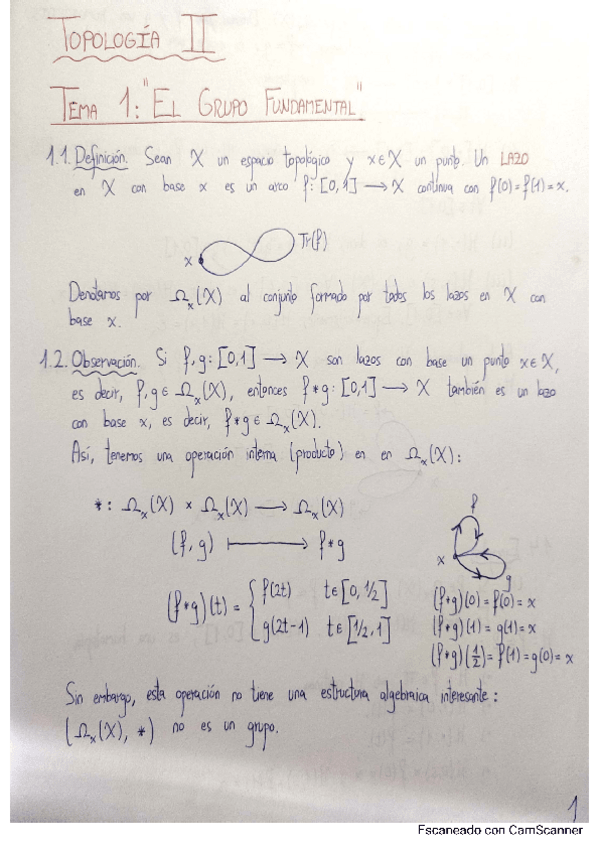 TOPOLOGÍA II
TEMA 1: "EL GRUPO FUNDAMENTAL"
1.1. Definición. Sean X un espacio topológico y x∈X un punto. Un LAZO
en X con base x es un arco f: [0,1] ⟶ X continua con f(0)=f(1)=x.
x Tr(f)
Denotamos por Ωx(X) al conjunto formado por todos los lazos en X con
base x.
1.2. Observación. Si f,g: [0,1] ⟶ X son lazos con base un punto x∈X,
es decir, f,g∈ Ωx(X), entonces f*g: [0,1] ⟶ X también es un lazo
con base x, es decir, f*g∈ Ωx(X).
Así, tenemos una operación interna (producto) en en Ωx(X):
*: Ωx(X) × Ωx(X) ⟶ Ωx(X)
(f,g) ⟼ f*g
f
x
g
(f*g)(t) = { f(2t) t∈[0,1/2]
g(2t-1) t∈[1/2,1]
(f*g)(0)=f(0)=x
(f*g)(1)=g(1)=x
(f*g)(1/2)=f(1)=g(0)=x
Sin embargo, esta operación no tiene una estructura algebraica interesante:
(Ωx(X), *) no es un grupo.
1
Escaneado con CamScanner